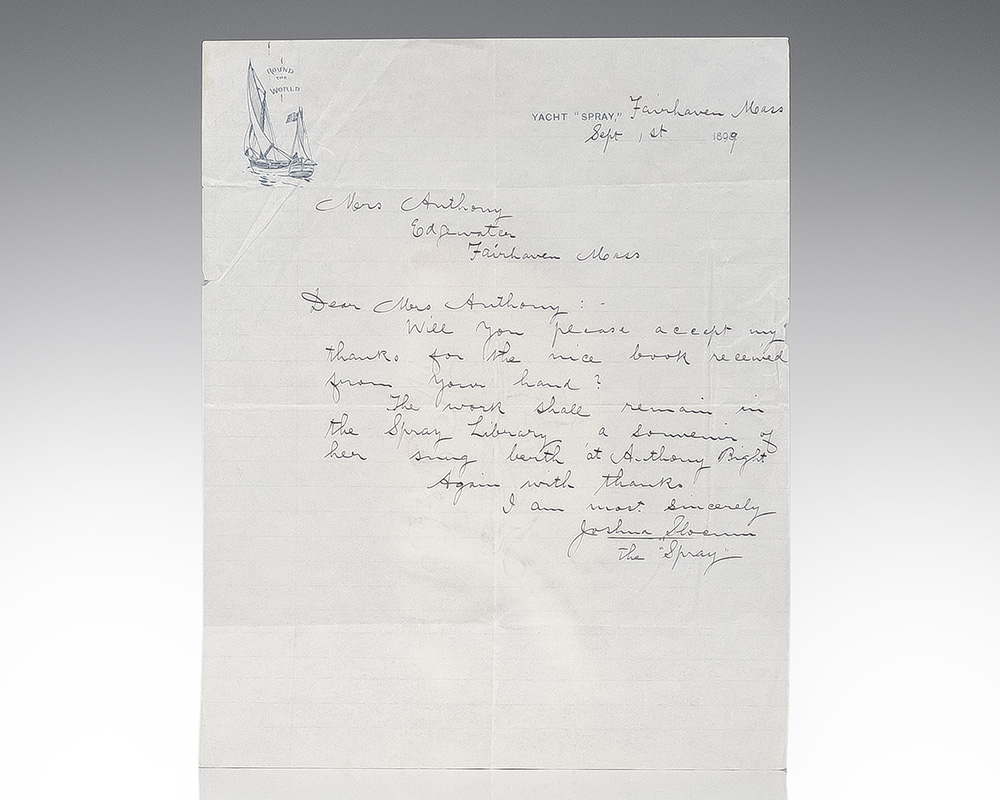 ROUND
THE
WORLD
YACHT "SPRAY," Fairhaven Mass
Sept 1st 1899
Mrs Anthony
Edgewater
Fairhaven Mass
Dear Mrs Anthony :-
Will you please accept my
thanks for the nice book received
from your hand ?
The work shall remain in
the Spray Library a souvenir of
her snug berth at Anthony Bight
Again with thanks
I am most sincerely
Joshua Slocum
the "Spray"